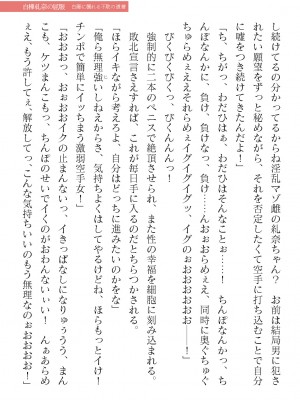 し続けてるの分かってるからね淫乱マゾ雌の礼奈ちゃん? お前は結局男に犯さ
れたい願望をずっと秘めながら、それを否定したくて空手に打ち込むことで自分
に嘘をつき続けてきたんだよ!」
「ち、ちがっ、わだひはぁ、わだひはそんなことぉ……! ちんぽなんかっ、ち
んぽなんかに、負け、負けなっ、負け……んおぉおらめぇえ、同時に奥ぐちゅぐ
ちゅらめぇえええそれらめぇイグイグイグッ、イグのぉおおおおお――!」
びくびくっっ、びくんんんっ!
強制的に二本のペニスで絶頂させられ、また性の幸福を細胞に刻み込まれる。
敗北宣言さえすれば、これが毎日手に入るのだとちらつかされる。
「ほらイキながら考えろよ、自分はどっちに進みたいのかをな」
「俺ら無理強いしねえからさ、気持ちよくはしてやるけどね、ほらもっとイけ!
チンポで簡単にイッちまう激弱空手女!」
「おおおっ、おぉおおイク の止まんないっ、イきっぱなしになりゅううう、まん
こ、ケツまんこもっ、ちんぽのせいでイくのがおわんないぃい! んぁあらめ
ぇえ、もう許してぇっ、解放してっ、こんな気持ちいいのもう無理なのぉおおおお!」